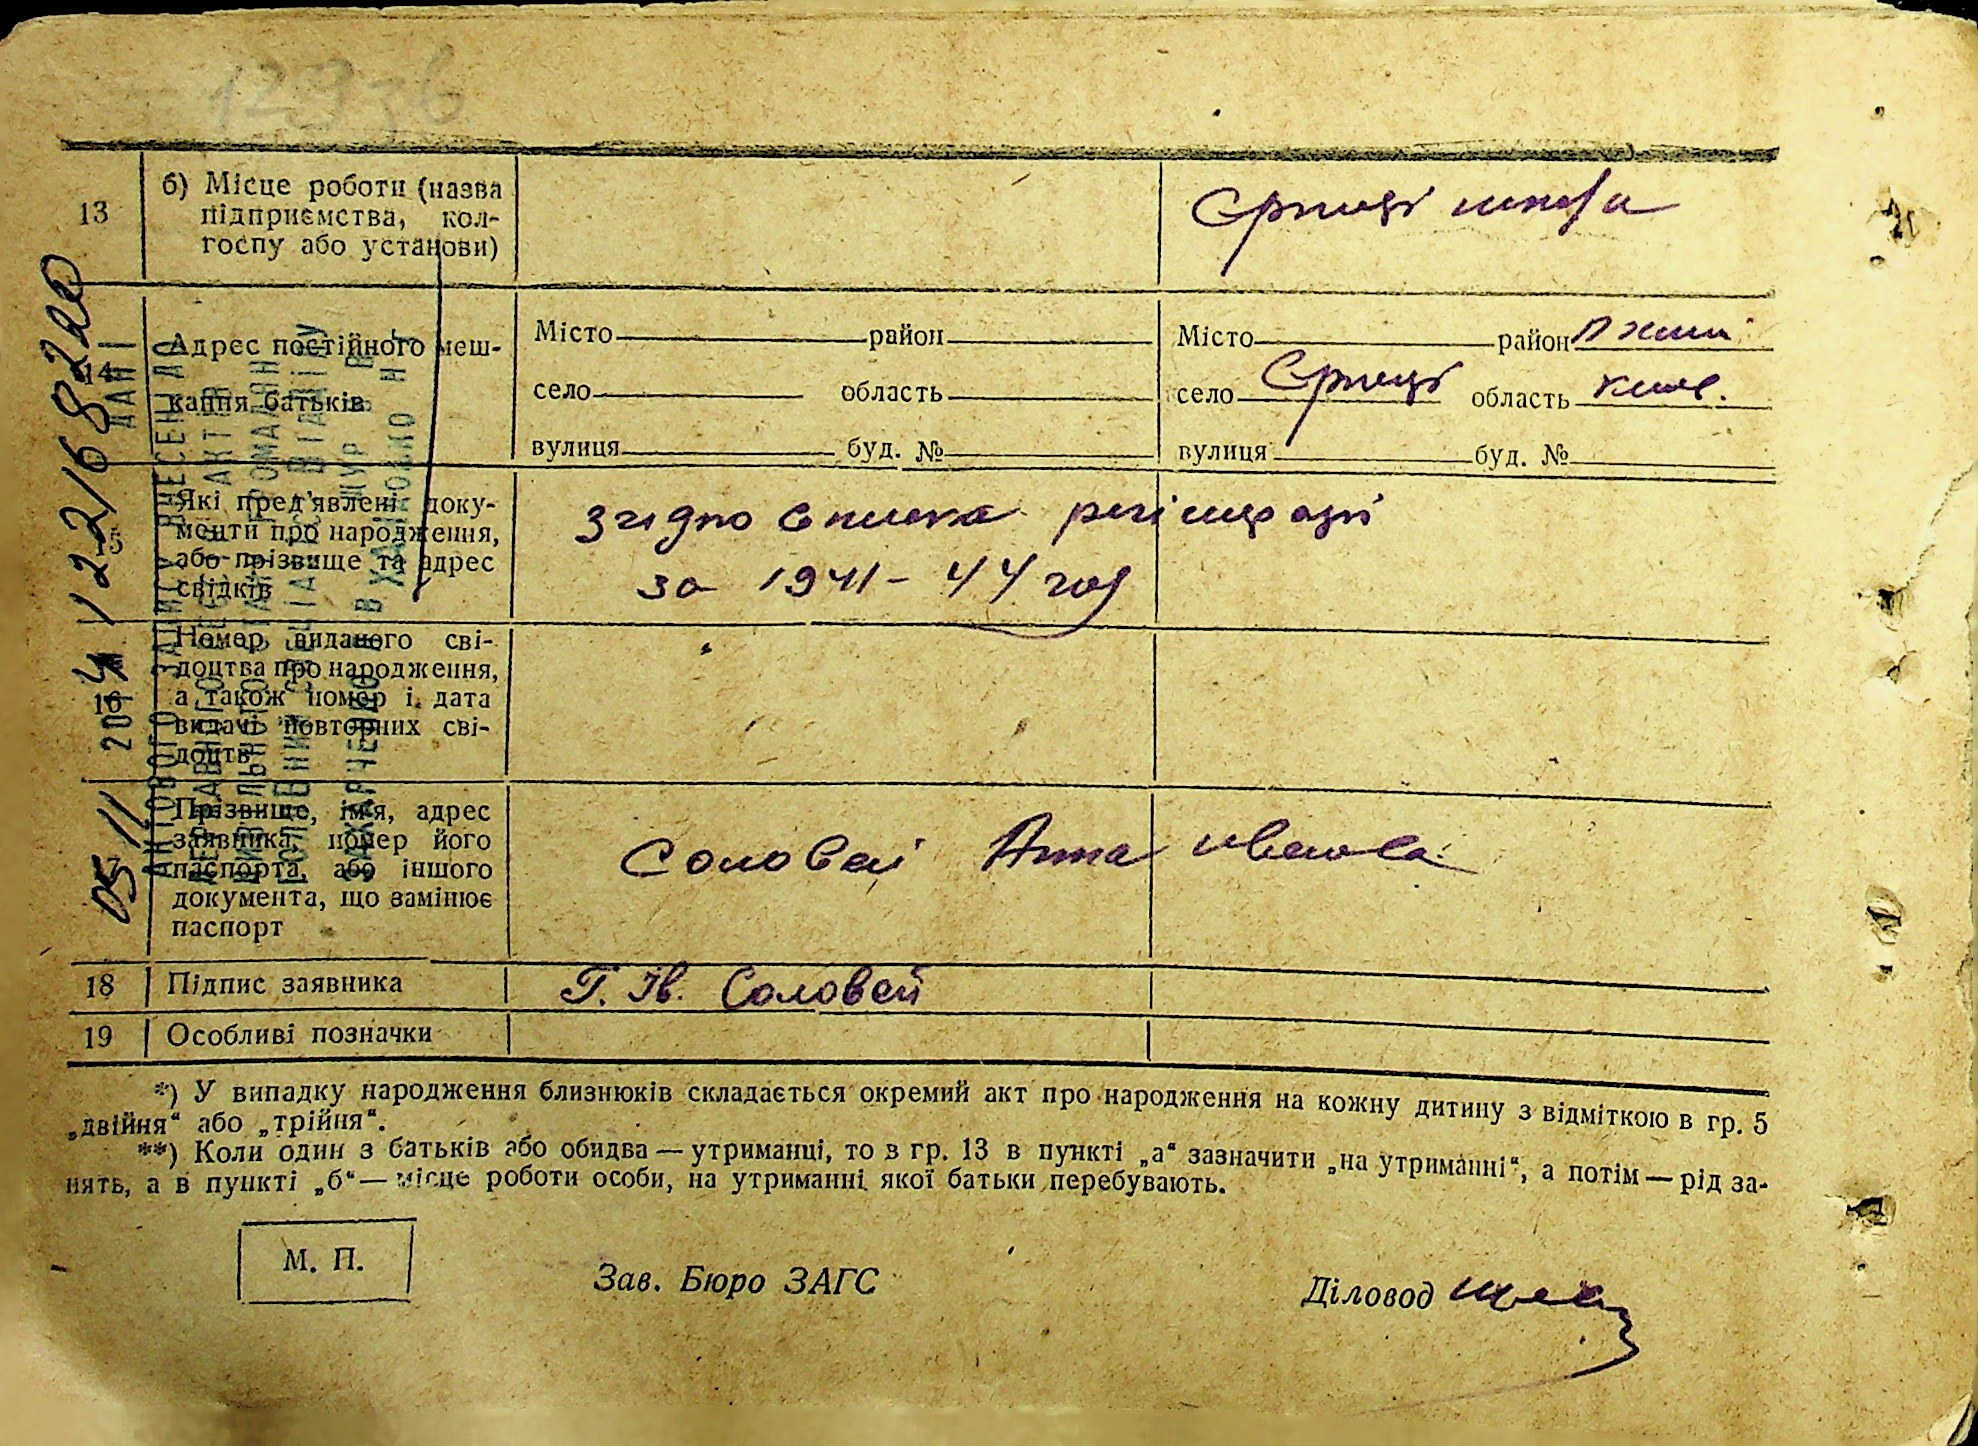 12936
13 б) Місце роботи (назва
підприємства, кол-
госпу або установи)
Єрчиці школа
14 Адрес постійного меш-
кання батьків
Місто район
село область
вулиця буд. №
Місто район
село Єрчиці область київ.
вулиця буд. №
Які пред'явлені доку-
менти про народження,
або прізвище та адрес
свідків
згидно списка регістрації
за 1941-44 год
16 Номер виданого сві-
доцтва про народження,
а також номер і дата
видачі повторних сві-
доцтв
Прізвище, ім'я, адрес
заявника, номер його
паспорта, або іншого
документа, що замінює
паспорт
Соловей Анна Ивановна
18 Підпис заявника
Г. Ів. Соловей
19 Особливі позначки
*) У випадку народження близнюків складається окремий акт про народження на кожну дитину з відміткою в гр. 5
„двійня“ або „трійня“.
**) Коли один з батьків або обидва — утриманці, то в гр. 13 в пункті „а“ зазначити „на утриманні“, а потім — рід за-
нять, а в пункті „б“ — місце роботи особи, на утриманні якої батьки перебувають.
М. П.
Зав. Бюро ЗАГС
Діловод
ДАНІ
АКТОВОГО ЗАПИСУ ВНЕСЕНІ ДО
ДЕРЖАВНОГО РЕЄСТРУ АКТІВ
ЦИВІЛЬНОГО СТАНУ ГРОМАДЯН
05 11 2014 12216882200